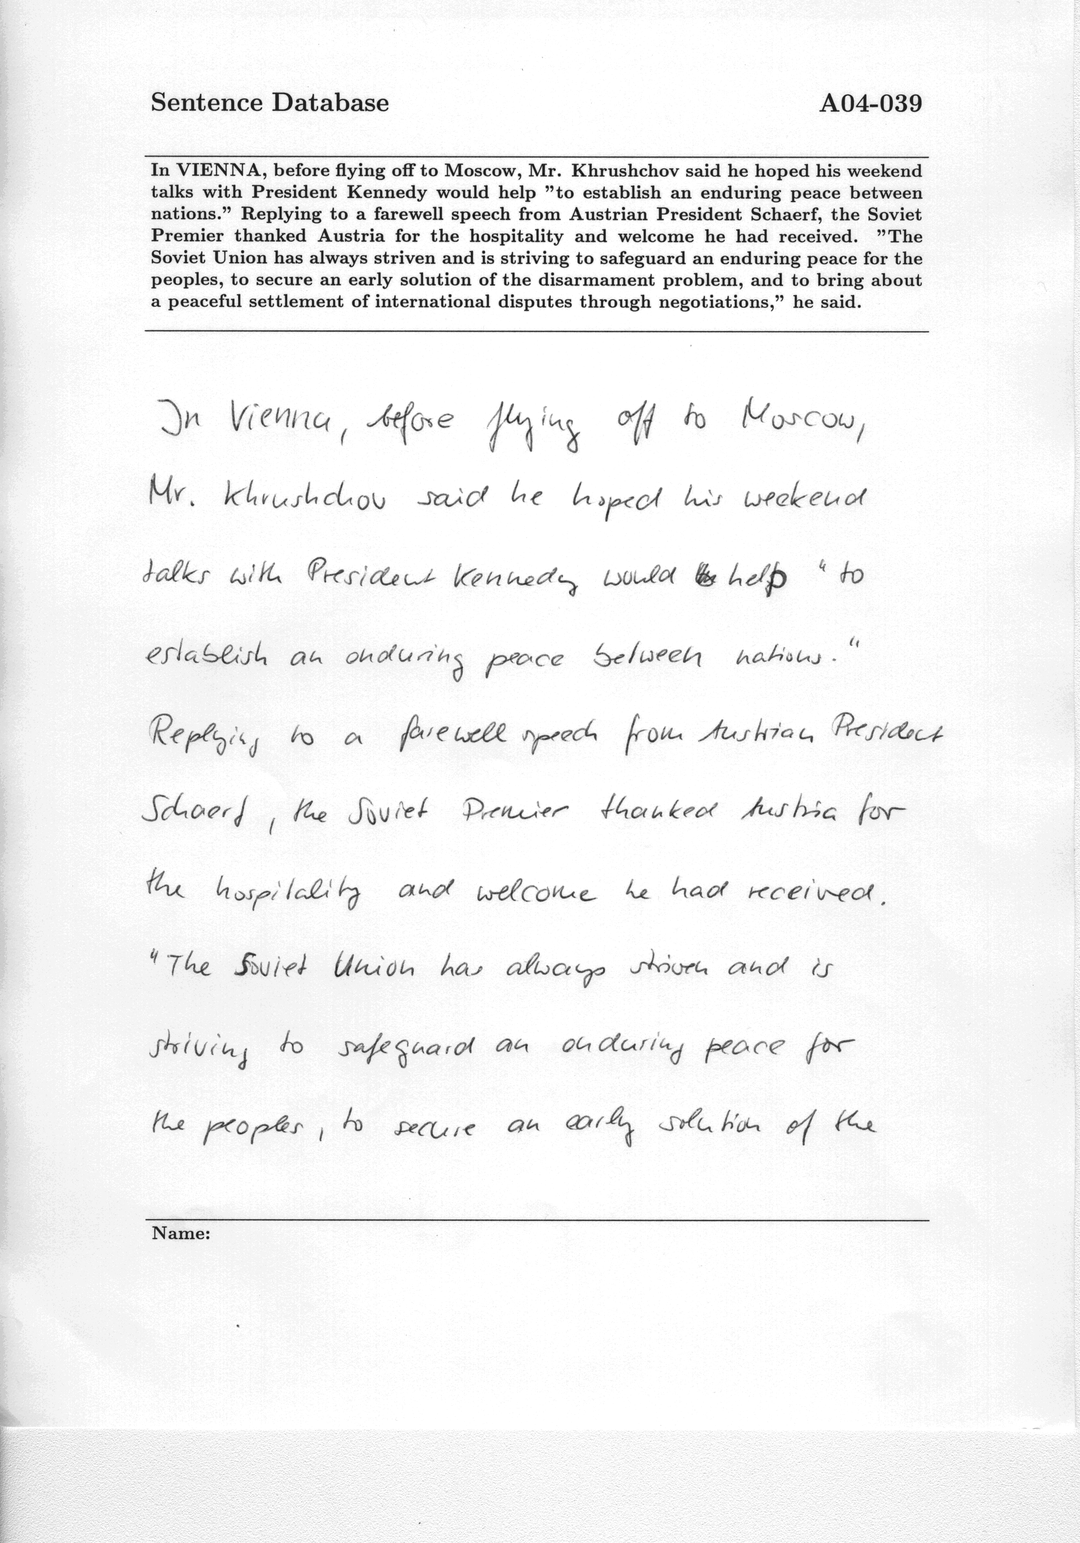 Sentence Database A04-039
In VIENNA, before flying off to Moscow, Mr. Khrushchov said he hoped his weekend
talks with President Kennedy would help "to establish an enduring peace between
nations." Replying to a farewell speech from Austrian President Schaerf, the Soviet
Premier thanked Austria for the hospitality and welcome he had received. "The
Soviet Union has always striven and is striving to safeguard an enduring peace for the
peoples, to secure an early solution of the disarmament problem, and to bring about
a peaceful settlement of international disputes through negotiations," he said.
In Vienna, before flying off to Moscow,
Mr. Khrushchov said he hoped his weekend
talks with President Kennedy would help "to
establish an enduring peace between nations."
Replying to a farewell speech from Austrian President
Schaerf, the Soviet Premier thanked Austria for
the hospitality and welcome he had received.
"The Soviet Union has always striven and is
striving to safeguard an enduring peace for
the peoples, to secure an early solution of the
Name: